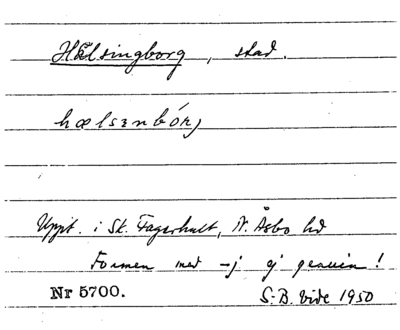 Hälsingborg, stad.
hælsɪnbórj
Uppt. i Sk. Fagerhult, N. Åsbo hd
Formen med -j ej genuin!
Nr 5700. S.-B. Vide 1950